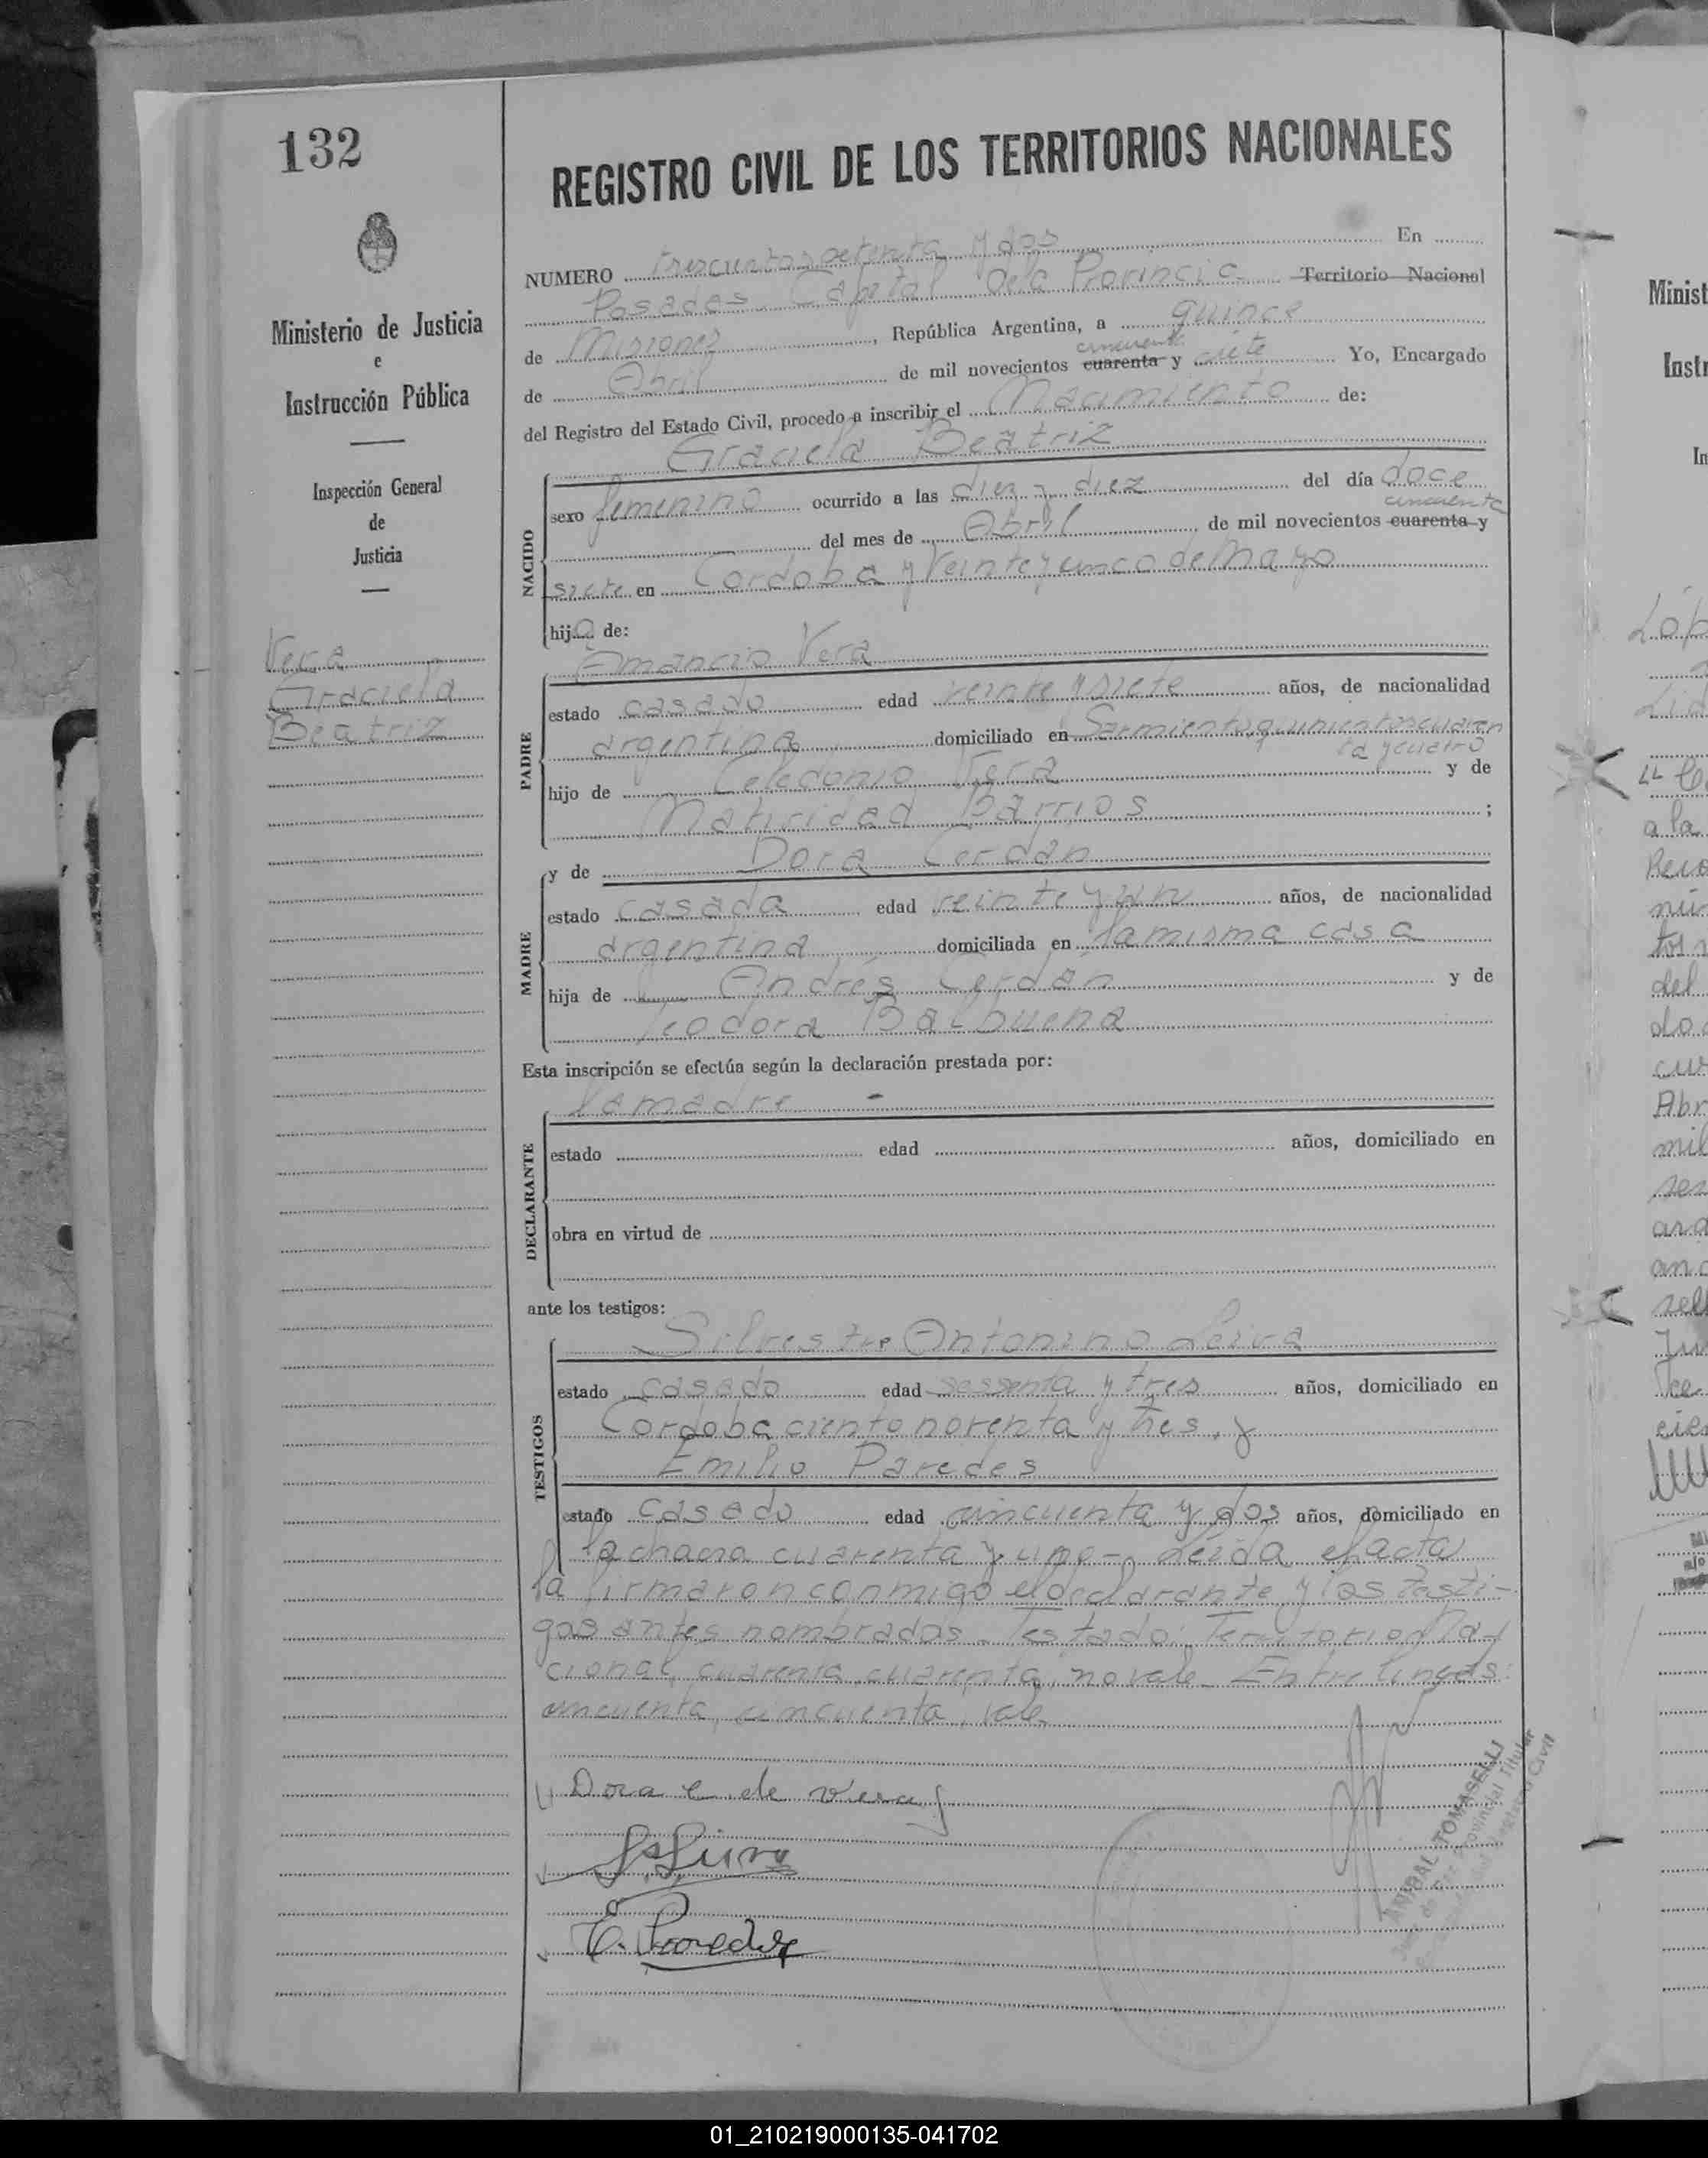 132
REGISTRO CIVIL DE LOS TERRITORIOS NACIONALES
Ministerio de Justicia
e
Instrucción Pública
Inspección General
de
Justicia
Vera
Graciela
Beatriz
NUMERO trescientos setenta y dos En
Posadas Capital de la Provincia Territorio Nacional
de Misiones, República Argentina, a quince
de Abril de mil novecientos cuarenta cincuenta y siete Yo, Encargado
del Registro del Estado Civil, procedo a inscribir el Nacimiento de:
Graciela Beatriz
NACIDO
sexo femenino ocurrido a las diez y diez del día doce
del mes de Abril de mil novecientos cuarenta cincuenta y
siete en Cordoba y Veinte y cinco de Mayo
hija de:
Amancio Vera
PADRE
estado casado edad veinte y siete años, de nacionalidad
argentina domiciliado en Sarmiento quinientos cuaren
ta y cuatro
hijo de Celedonio Vera y de
Natividad Barrios ;
MADRE
y de Dora Cerdán
estado casada edad veinte y un años, de nacionalidad
argentina domiciliada en la misma casa
hija de Andrés Cerdán y de
Teodora Balbuena
Esta inscripción se efectúa según la declaración prestada por:
la madre -
DECLARANTE
estado edad años, domiciliado en
obra en virtud de
ante los testigos:
TESTIGOS
Silvestre Antonino Leiva
estado casado edad sessenta y tres años, domiciliado en
Cordoba ciento noventa y tres, y
Emilio Paredes
estado casado edad cincuenta y dos años, domiciliado en
la chacra cuarenta y uno-, Leída el acta
la firmaron conmigo el declarante y los testi-
gos antes nombrados. Testado: Territorio Na-
cional, cuarenta, cuarenta, no vale. Entre lineas:
cincuenta, cincuenta, vale
Dora C. de Vera
E. Paredes
ANIBAL TOMASELLI
Provincial Titular
Minist
Inst
In
Lóp
a la
del
Abr
mil
01_210219000135-041702